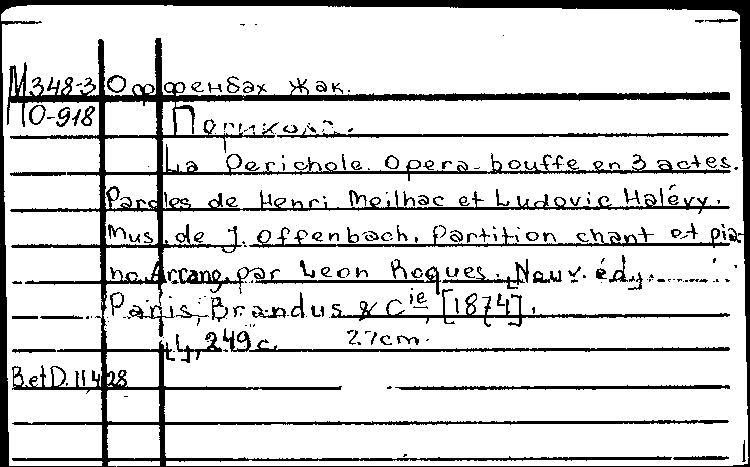 М348-3 Оффенбах Жак.
ПО-918 Перикола.
La Perichole. Opera-bouffe en 3 actes.
Paroles de Henri Meilhac et Ludovic Halévy.
Mus. de J. Offenbach. Partition chant et pia-
no. Arrang. par Leon Roques. [Nouv. éd].
Paris, Brandus & Cie, [1874].
[4], 249 c. 27cm.
B.etD. 11,428